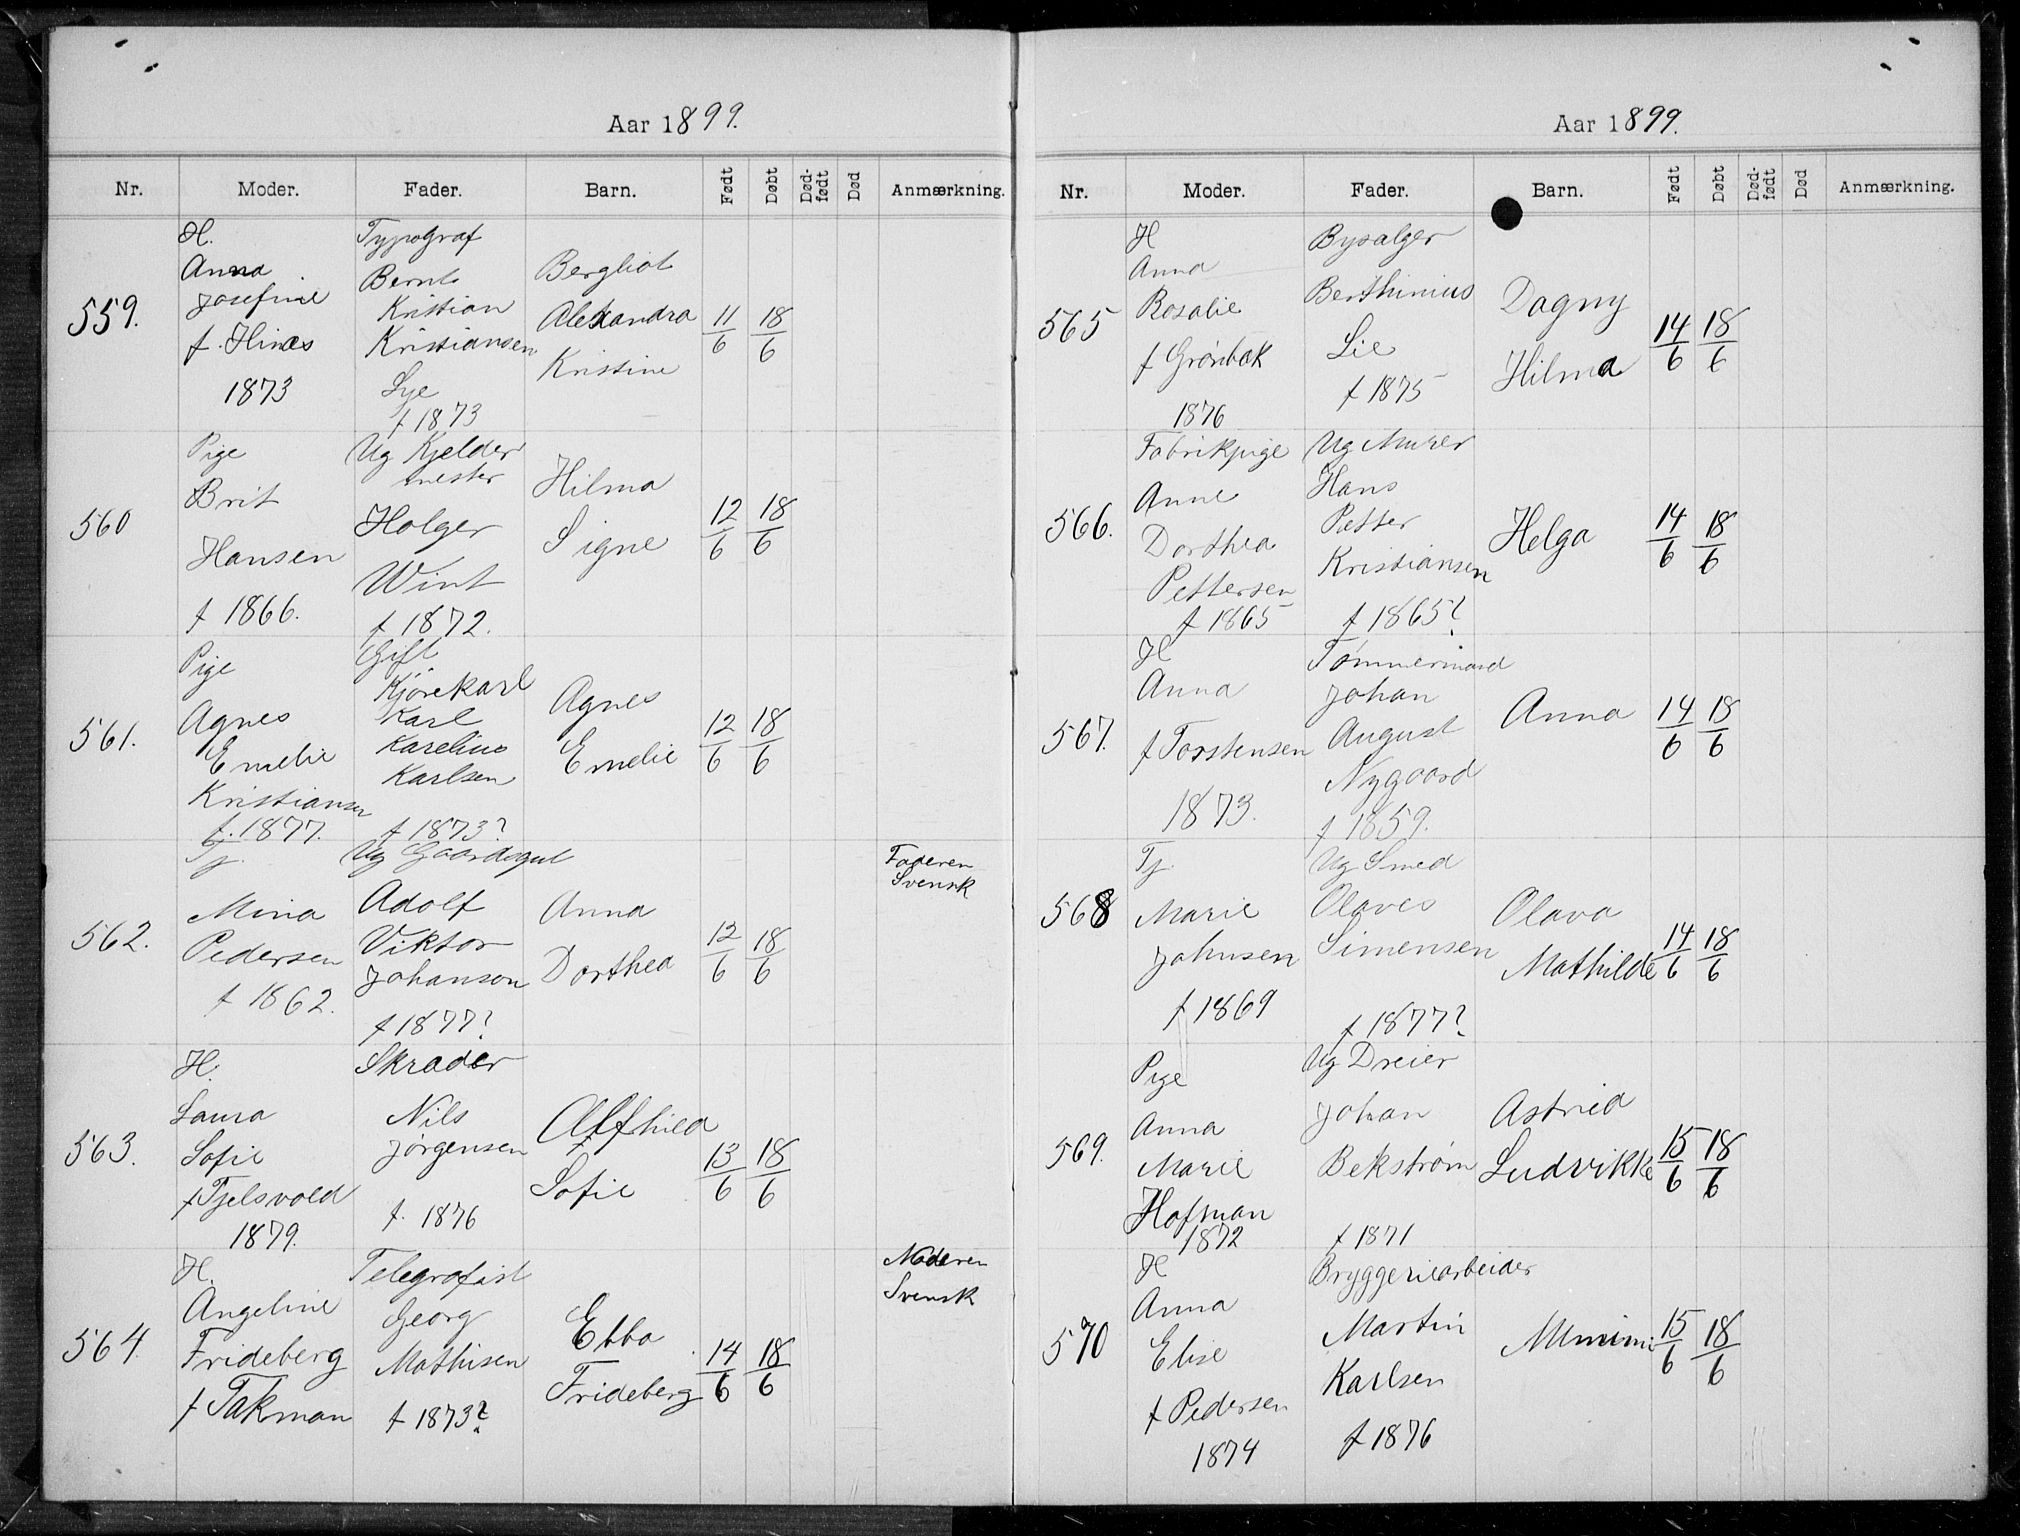 Aar 1899.
Nr. Moder. Fader. Barn. Født Døbt Død-født Død Anmærkning.
559.
H.
Anna
Josefine
f. Hines
1873
Typograf
Bernt
Kristian
Kristiansen
Lye
f 1873
Bergliot
Alexandra
Kristine
11/6 18/6
560
Pige
Brit
Hansen
f 1866.
Ug Kjelder
mester
Holger
Wint
f 1872.
Hilma
Signe
12/6 18/6
561.
Pige
Agnes
Emelie
Kristiansen
f. 1877.
Gift
Kjørekarl
Karl
Karelius
Karlsen
f 1873?
Agnes
Emelie
12/6 18/6
562.
Tj.
Mina
Pedersen
f 1862.
Ug Gaardsgut
Adolf
Viktor
Johanson
f 1877?
Anna
Dorthea
12/6 18/6
Faderen
Svensk
563.
H.
Laura
Sofie
f Tjelsvold
1879.
Skrader
Nils
Jørgensen
f. 1876
Alfhild
Sofie
13/6 18/6
564.
H.
Angeline
Frideberg
f Takman
Telegrafist
Georg
Mathisen
f 1873?
Ebba
Frideberg
14/6 18/6
Moderen
Svensk
Aar 1899.
Nr. Moder. Fader. Barn. Født Døbt Død-født Død Anmærkning.
565
H
Anna
Rosalie
f Grønbak
1876
Bysalger
Berthinius
Lie
f 1875
Dagny
Hilma
14/6 18/6
566.
Fabrikpige
Anne
Dorthea
Pettersen
f 1865
Ug Murer
Hans
Petter
Kristiansen
f 1865?
Helga
14/6 18/6
567.
H
Anna
f Torstensen
1873.
Tømmermand
Johan
August
Nygaard
f 1859.
Anna
14/6 18/6
568
Tj.
Marie
Johnsen
f 1869
Ug Smed
Olaves
Simensen
f 1877?
Olava
Mathilde
14/6 18/6
569.
Pige
Anna
Marie
Hofman
1872
Ug Dreier
Johan
Bekstrøm
f 1871
Astrid
Ludvikke
15/6 18/6
570
H
Anna
Elise
f Pedersen
1874
Bryggeriearbeider
Martin
Karlsen
f 1876
Mimimi
15/6 18/6